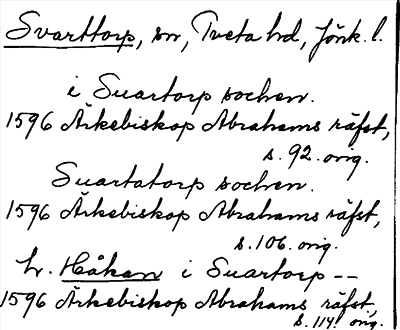 Svarttorp, sn, Tveta hd, Jönk. l.
i Suartorp sochen.
1596 Ärkebiskop Abrahams räfst,
s. 92. orig.
Suartatorp sochen.
1596 Ärkebiskop Abrahams räfst,
s. 106. orig.
hr. Håkan i Suartorp --
1596 Ärkebiskop Abrahams räfst,
s. 114. orig.